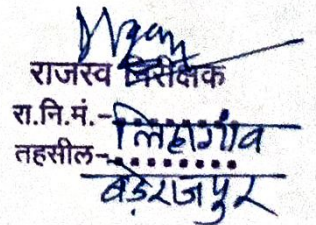 राजस्व निरीक्षक
रा.नि.मं.- लिहागांव
तहसील- बड़ेराजपुर